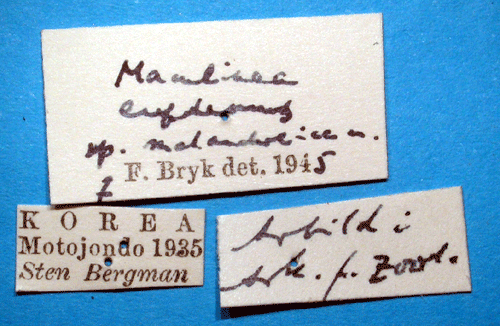 Maculinea
euphemus
sp. melancholica n.
F. Bryk det. 1945
KOREA
Motojondo 1935
Sten Bergman
Avbild i
Ark. f. Zool.